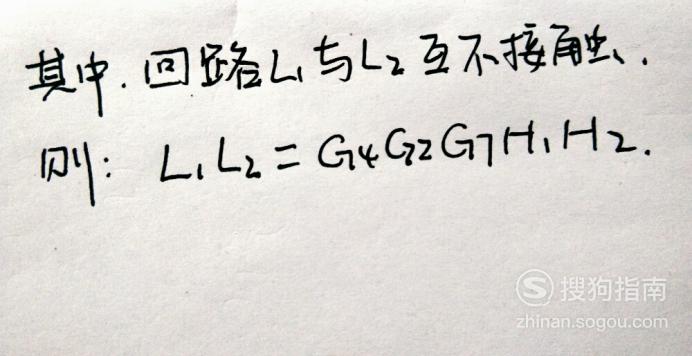 其中.回路L₁与L₂互不接触.
则: L₁L₂=G₄G₂G₇H₁H₂.
S 搜狗指南
zhinan.sogou.com